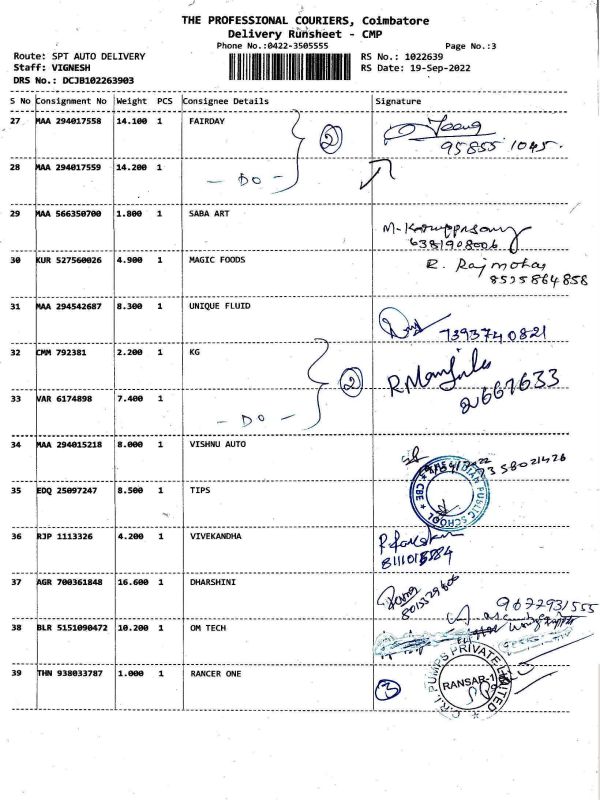 THE PROFESSIONAL COURIERS, Coimbatore
Delivery Runsheet - CMP
Phone No.:0422-3505555 Page No.:3
Route: SPT AUTO DELIVERY RS No.: 1022639
Staff: VIGNESH RS Date: 19-Sep-2022
DRS No.: DCJB102263903
S No Consignment No Weight PCS Consignee Details Signature
27 MAA 294017558 14.100 1 FAIRDAY 2
95855 1045.
28 MAA 294017559 14.200 1 - DO -
29 MAA 566350700 1.800 1 SABA ART
6381908006
30 KUR 527560026 4.900 1 MAGIC FOODS R. Rajmohan
8525864858
31 MAA 294542687 8.300 1 UNIQUE FLUID
7393740821
32 CMM 792381 2.200 1 KG 2
33 VAR 6174898 7.400 1 - DO - 2667633
34 MAA 294015218 8.000 1 VISHNU AUTO
35 EDQ 25097247 8.500 1 TIPS
PUBLIC SCHOOL CBE
36 RJP 1113326 4.200 1 VIVEKANDHA
37 AGR 700361848 16.600 1 DHARSHINI
9677931555
38 BLR 5151090472 10.200 1 OM TECH
39 THN 938033787 1.000 1 RANCER ONE 3
C.R.I. PUMPS PRIVATE LIMITED